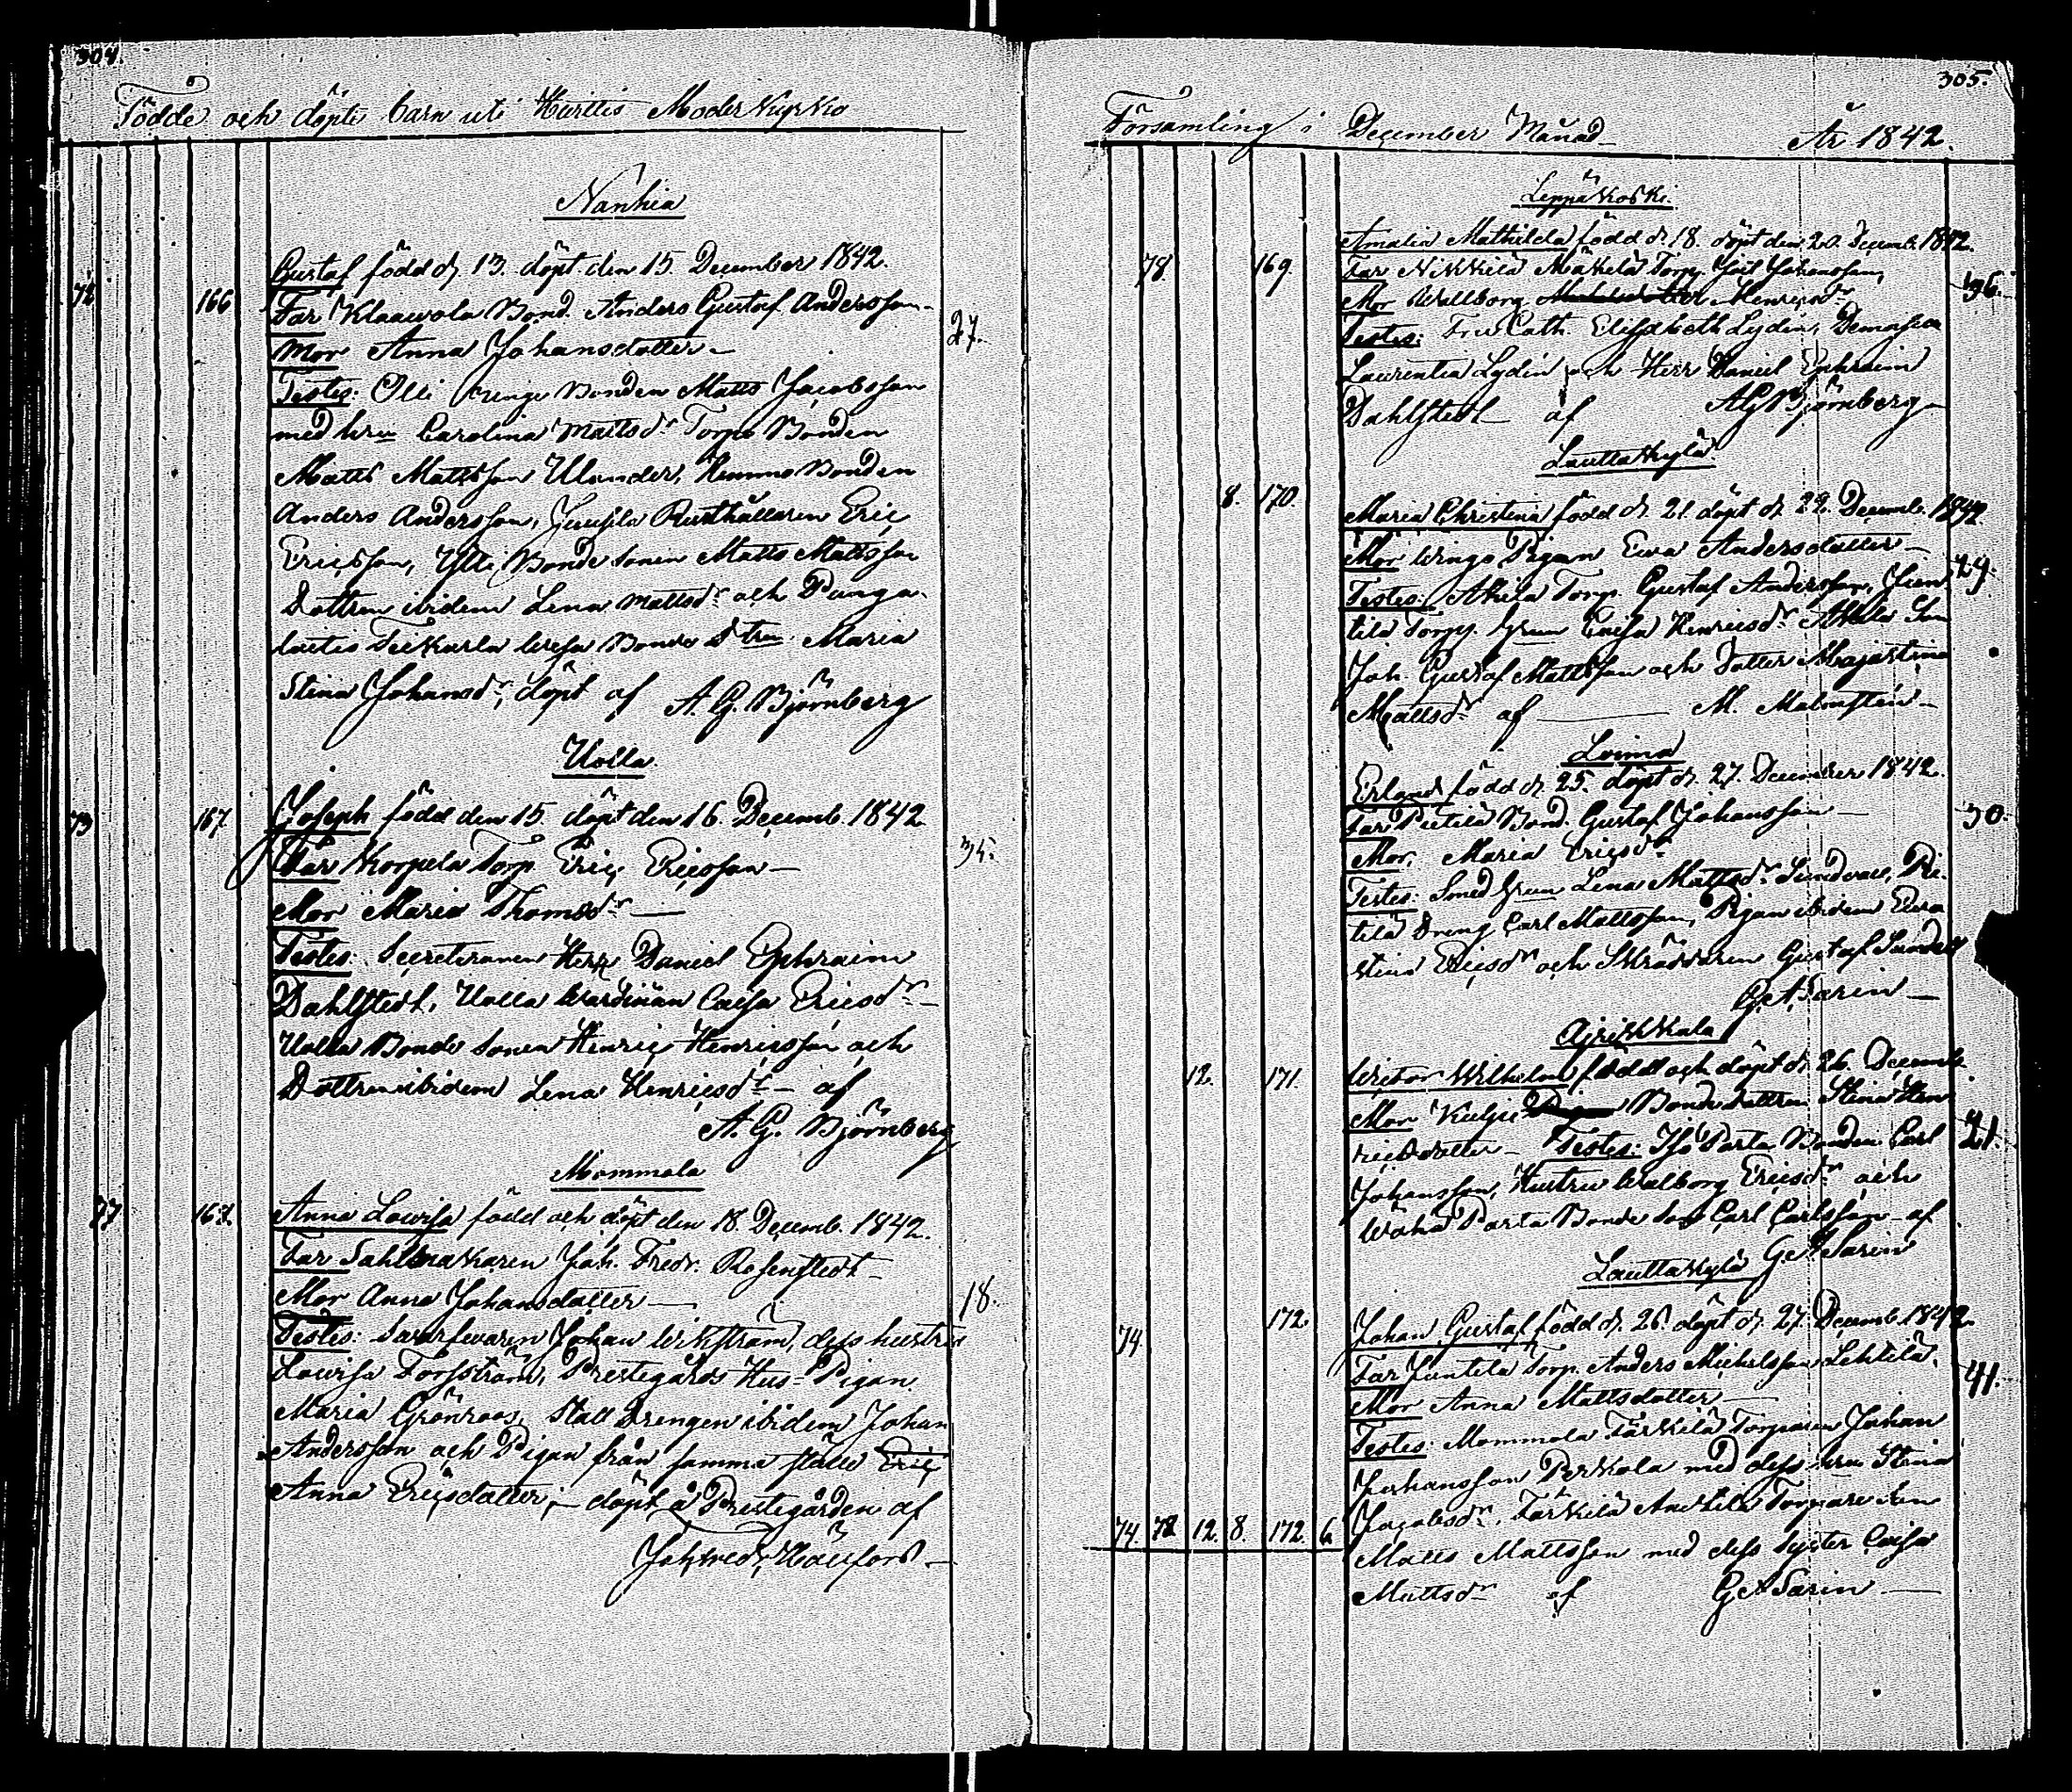 304.
Födde och döpte barn uti Huittis Moderkyrko
Nanhia
72 166 Gustaf född d. 13. döpt den 15. December 1842.
Far Klaawola Bond. Anders Gustaf Andersson
Mor Anna Johansdotter 27.
Testes: Olli Bonden Matts Jacobsson
med hru Carolina Mattsdr Torpe Bonden
Matts Mattsson Ulander, Hemmo Bonden
Anders Andersson, Rusthållaren Eric
Ericsson, Bonde Sonen Matts Mattsson
Dottren ibidem Lena Mattsdr och Punga-
laitio Bonde Maria
Stina Johansdr, döpt af A. G. Björnberg
Uolla.
73 167. Joseph född den 15. döpt den 16. Decemb. 1842.
Far Korpela Torp. Eric Ericsson 35.
Mor Maria Thomsdr
Testes: Secreteraren Herr Daniel Ephraim
Dahlstedt, Uolla Wärdinnan Caisa Ericsdr
Uolla Bonde Sonen Henric Henricsson och
Dottren ibidem Lena Henricsdr af
A. G. Björnberg
Mommola
77 168. Anna Lowisa född och döpt den 18. Decemb. 1842.
Far Sadlmakaren Joh. Fredr. Rosenstedt
Mor Anna Johansdotter 18.
Testes: Johan Wikström, dess hustru
Lowisa Forsström, Prestegårds Hus-Pigan
Maria Grönroos, Stall Drengen ibidem Johan
Andersson och Pigan från samma ställe Eric
Anna Ericsdotter, döpt å Prestegården af
Joh. Fredr.
305.
Församling i December Månad År 1842.
Leppäkoski.
Amalia Mathilda född d. 18. döpt den 20. Decemb. 1842.
78. 169. Far Nikkilä Mäkelä Torp. Johansson,
Mor Wallborg Henricsdr 36.
Testes: Fru Cath. Elisabeth Lydin, Demoiselle
Laurentia Lydin och Herr Daniel Ephraim
Dahlstedt af A G Björnberg
Lauttakylä
8. 170. Maria Christina född d. 21. döpt d. 22. Decemb. 1842.
Mor Pigan Eva Andersdotter
Testes: Torp. Gustaf Andersson, Jun- 29.
tila Torp. hrun Caisa Henricsdr Son
Joh. Gustaf Mattsson och Dotter Majastina
Mattsdr af M. Malmsten
Loima
Erland född d. 25. döpt d. 27. December 1842.
Far Pietilä Bond. Gustaf Johansson 30.
Mor. Maria Ericsdr
Testes: Smed hrun Lena Mattsdr Sundvall, Pie-
tilä Dreng Carl Mattsson, Pigan ibidem Ewa
Stina Ericsdr och Skräddaren Gustaf Sundell
G. A. Sarin
Ajrikkala
12. 171. Victor Wilhelm född och döpt d. 26. Decemb.
Mor Bonde dottren Stina Hen-
ricsdotter Testes: Iso Parta Bonden Carl 21.
Johansson, Hustru Walborg Ericsdr och
Wähä Parta Bonde Son Carl Carlsson af
G A Sarin
Lauttakylä
74. 172. Johan Gustaf född d. 26. döpt d. 27. Decemb. 1842.
Far Juntila Torp. Anders Michelsson Lehtilä. 41.
Mor Anna Mattsdotter
Testes: Mommola Färkilä Torparen Johan
Johansson Perkola med dess hru Stina
Jacobsdr. Färkilä Torpare Son
Matts Mattsson med dess Syster Caisa
Mattsdr af G A Sarin
74. 78 12. 8. 172. 6